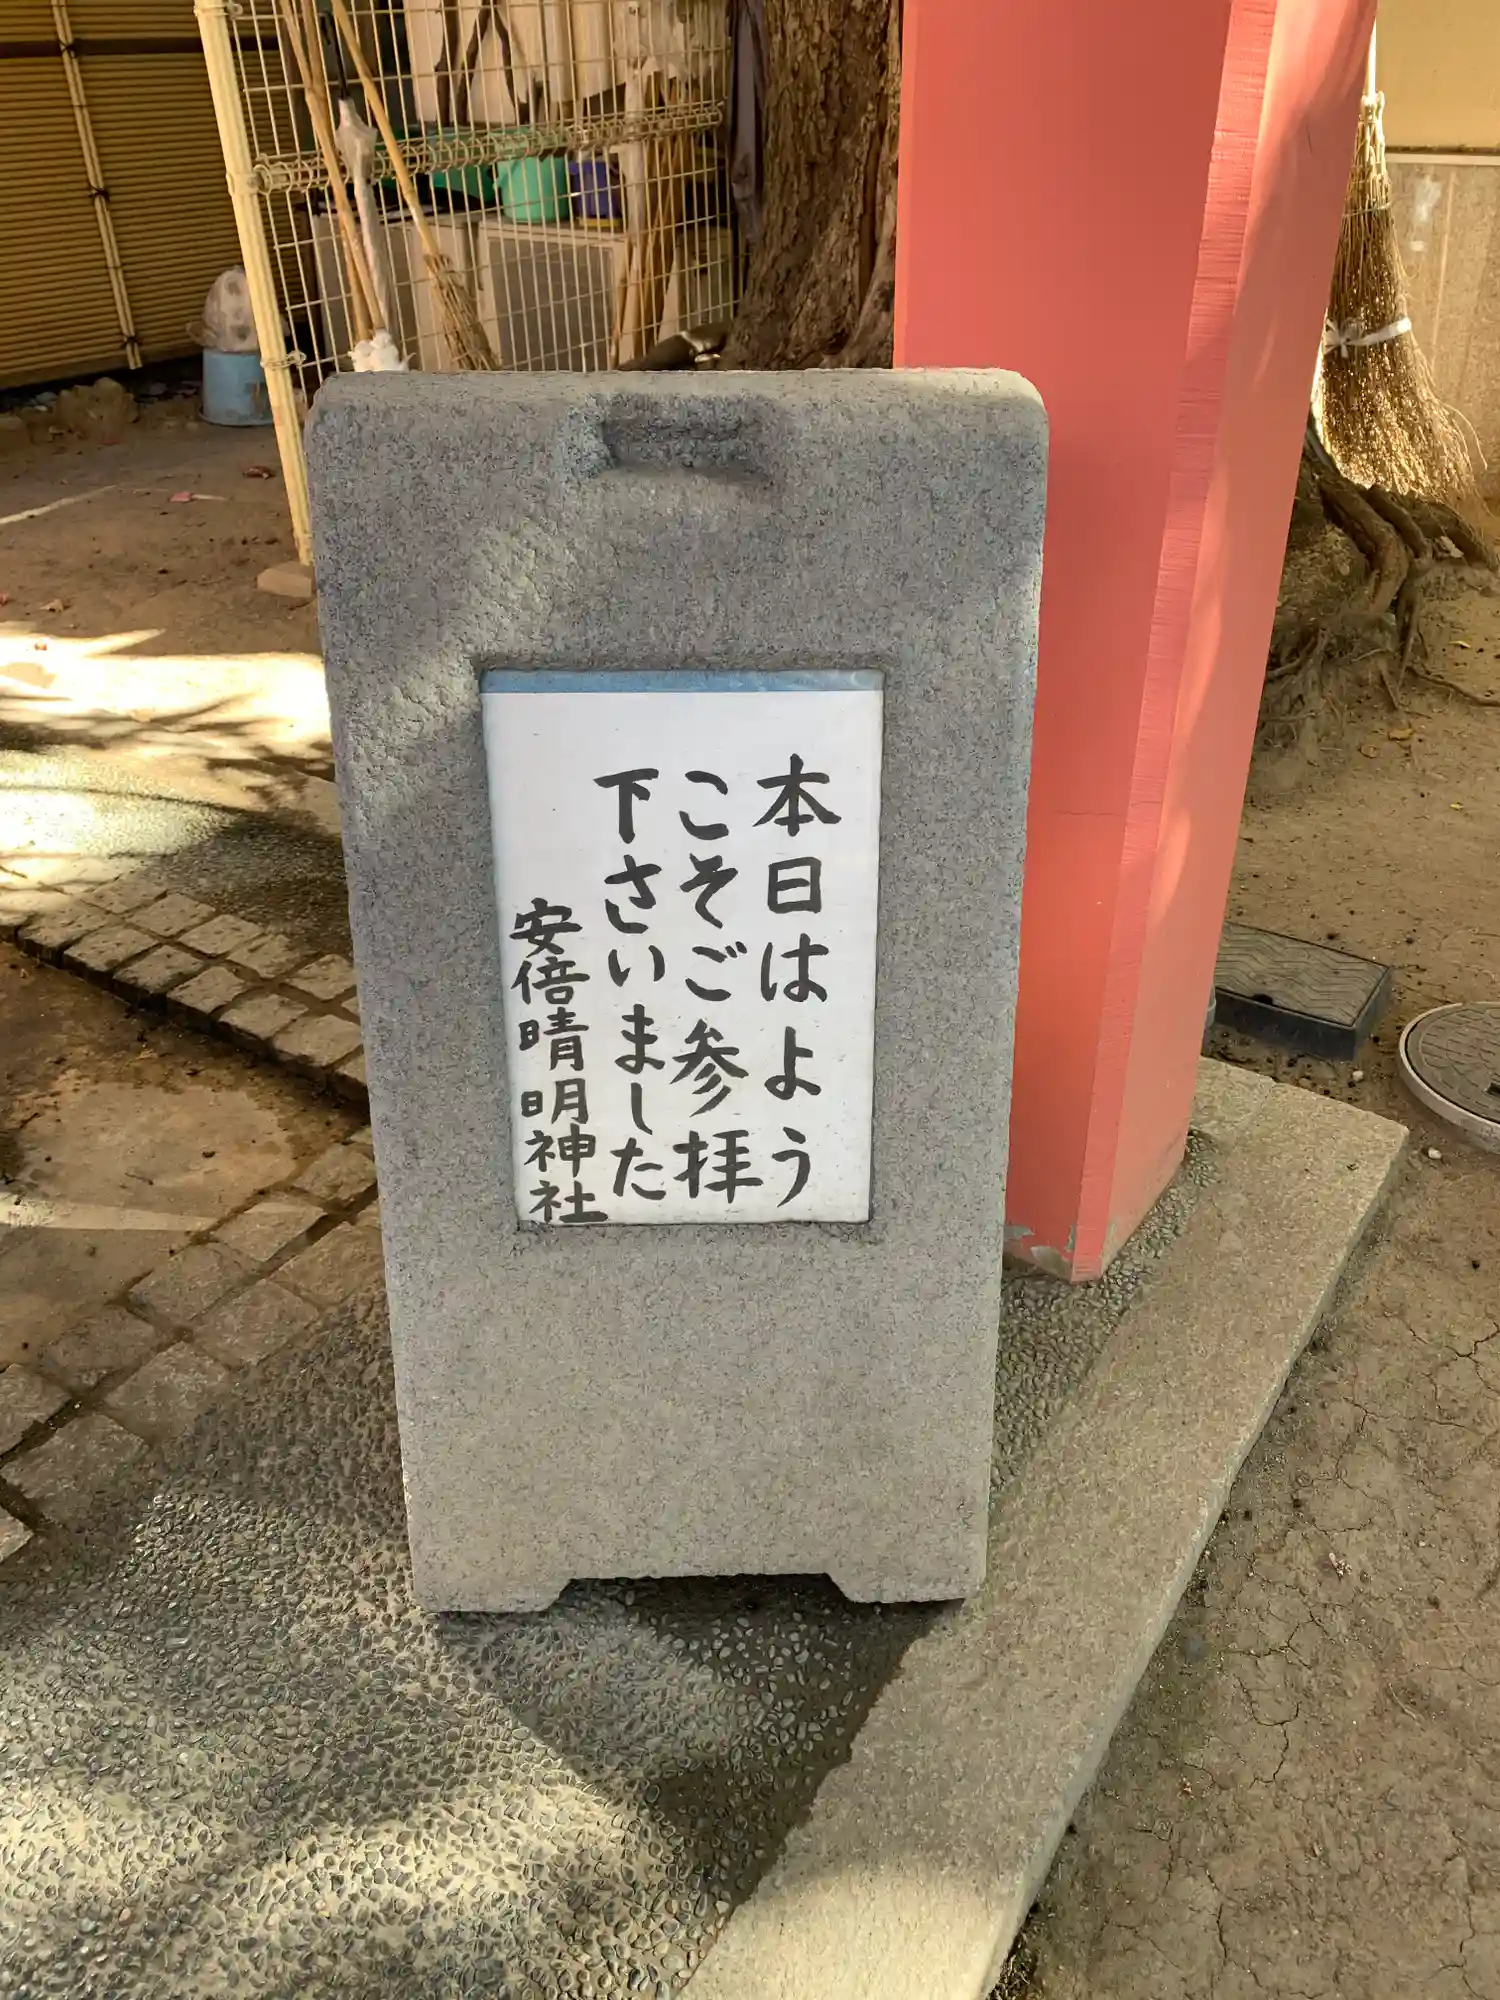 本日はよう
こそご参拝
下さいました
安倍晴明神社